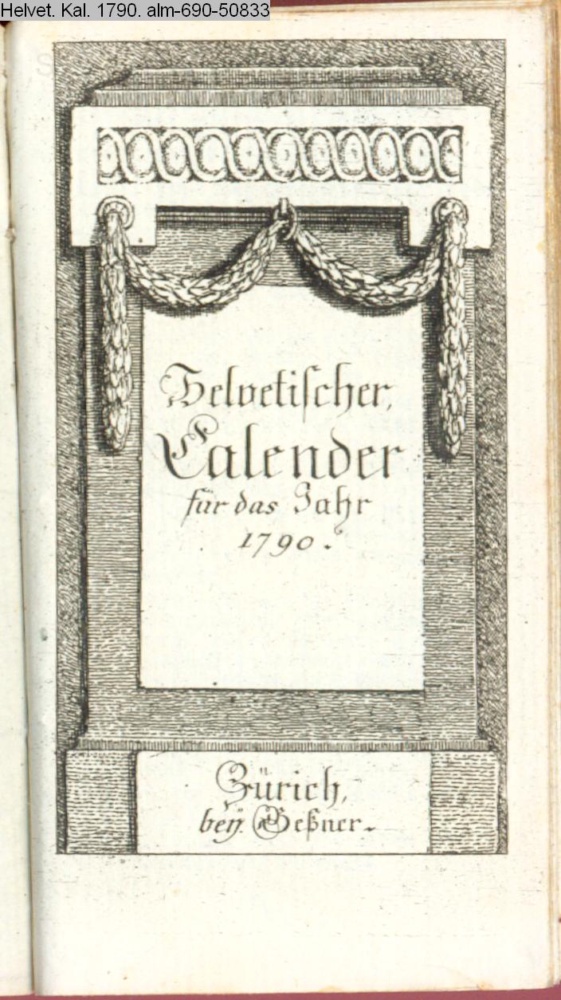 Helvet. Kal. 1790. alm-690-50833
Helvetischer,
Calender
für das Jahr
1790.
Zürich,
beÿ Geßner.